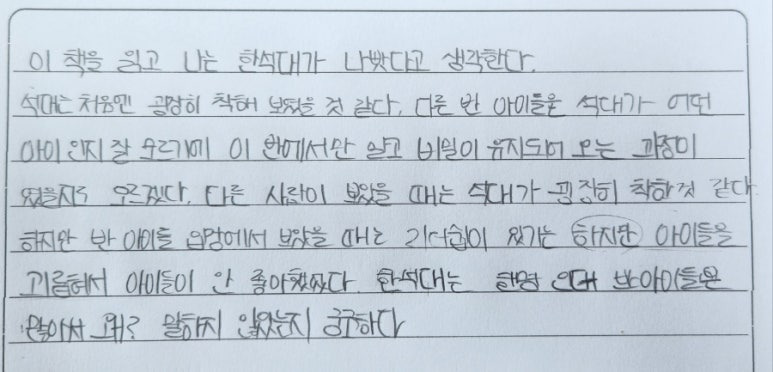 이 책을 읽고 나는 한석대가 나빴다고 생각한다.
석대는 처음엔 굉장히 착해 보였을 것 같다. 다른 반 아이들은 석대가 어떤
아이인지 잘 모르기에 이 반에서만 알고 비밀이 유지되어 오는 과정이
있을지도 모르겠다. 다른 사람이 보았을 때는 석대가 굉장히 착한것 같다
하지만 반 아이들 입장에서 보았을 때는 리더쉽이 있기는 하지만 아이들을
괴롭혀서 아이들이 안 좋아했었다 한석대는 반아이들은
왜? 말하지 않았는지 궁금하다